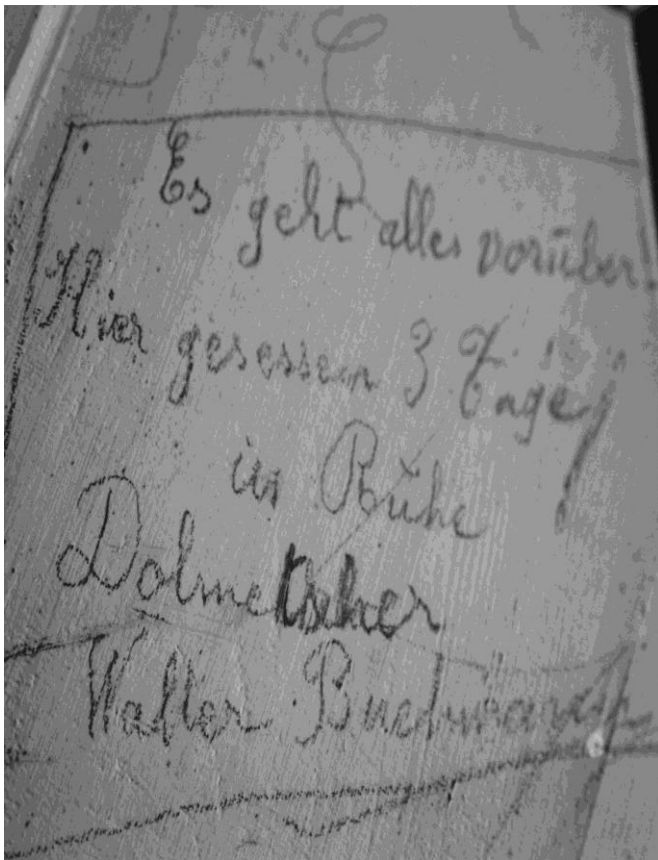 Es geht alles vorüber!
Hier gesessen 3 Tage
in Ruhe
Dolmetscher
Walter Buchmann